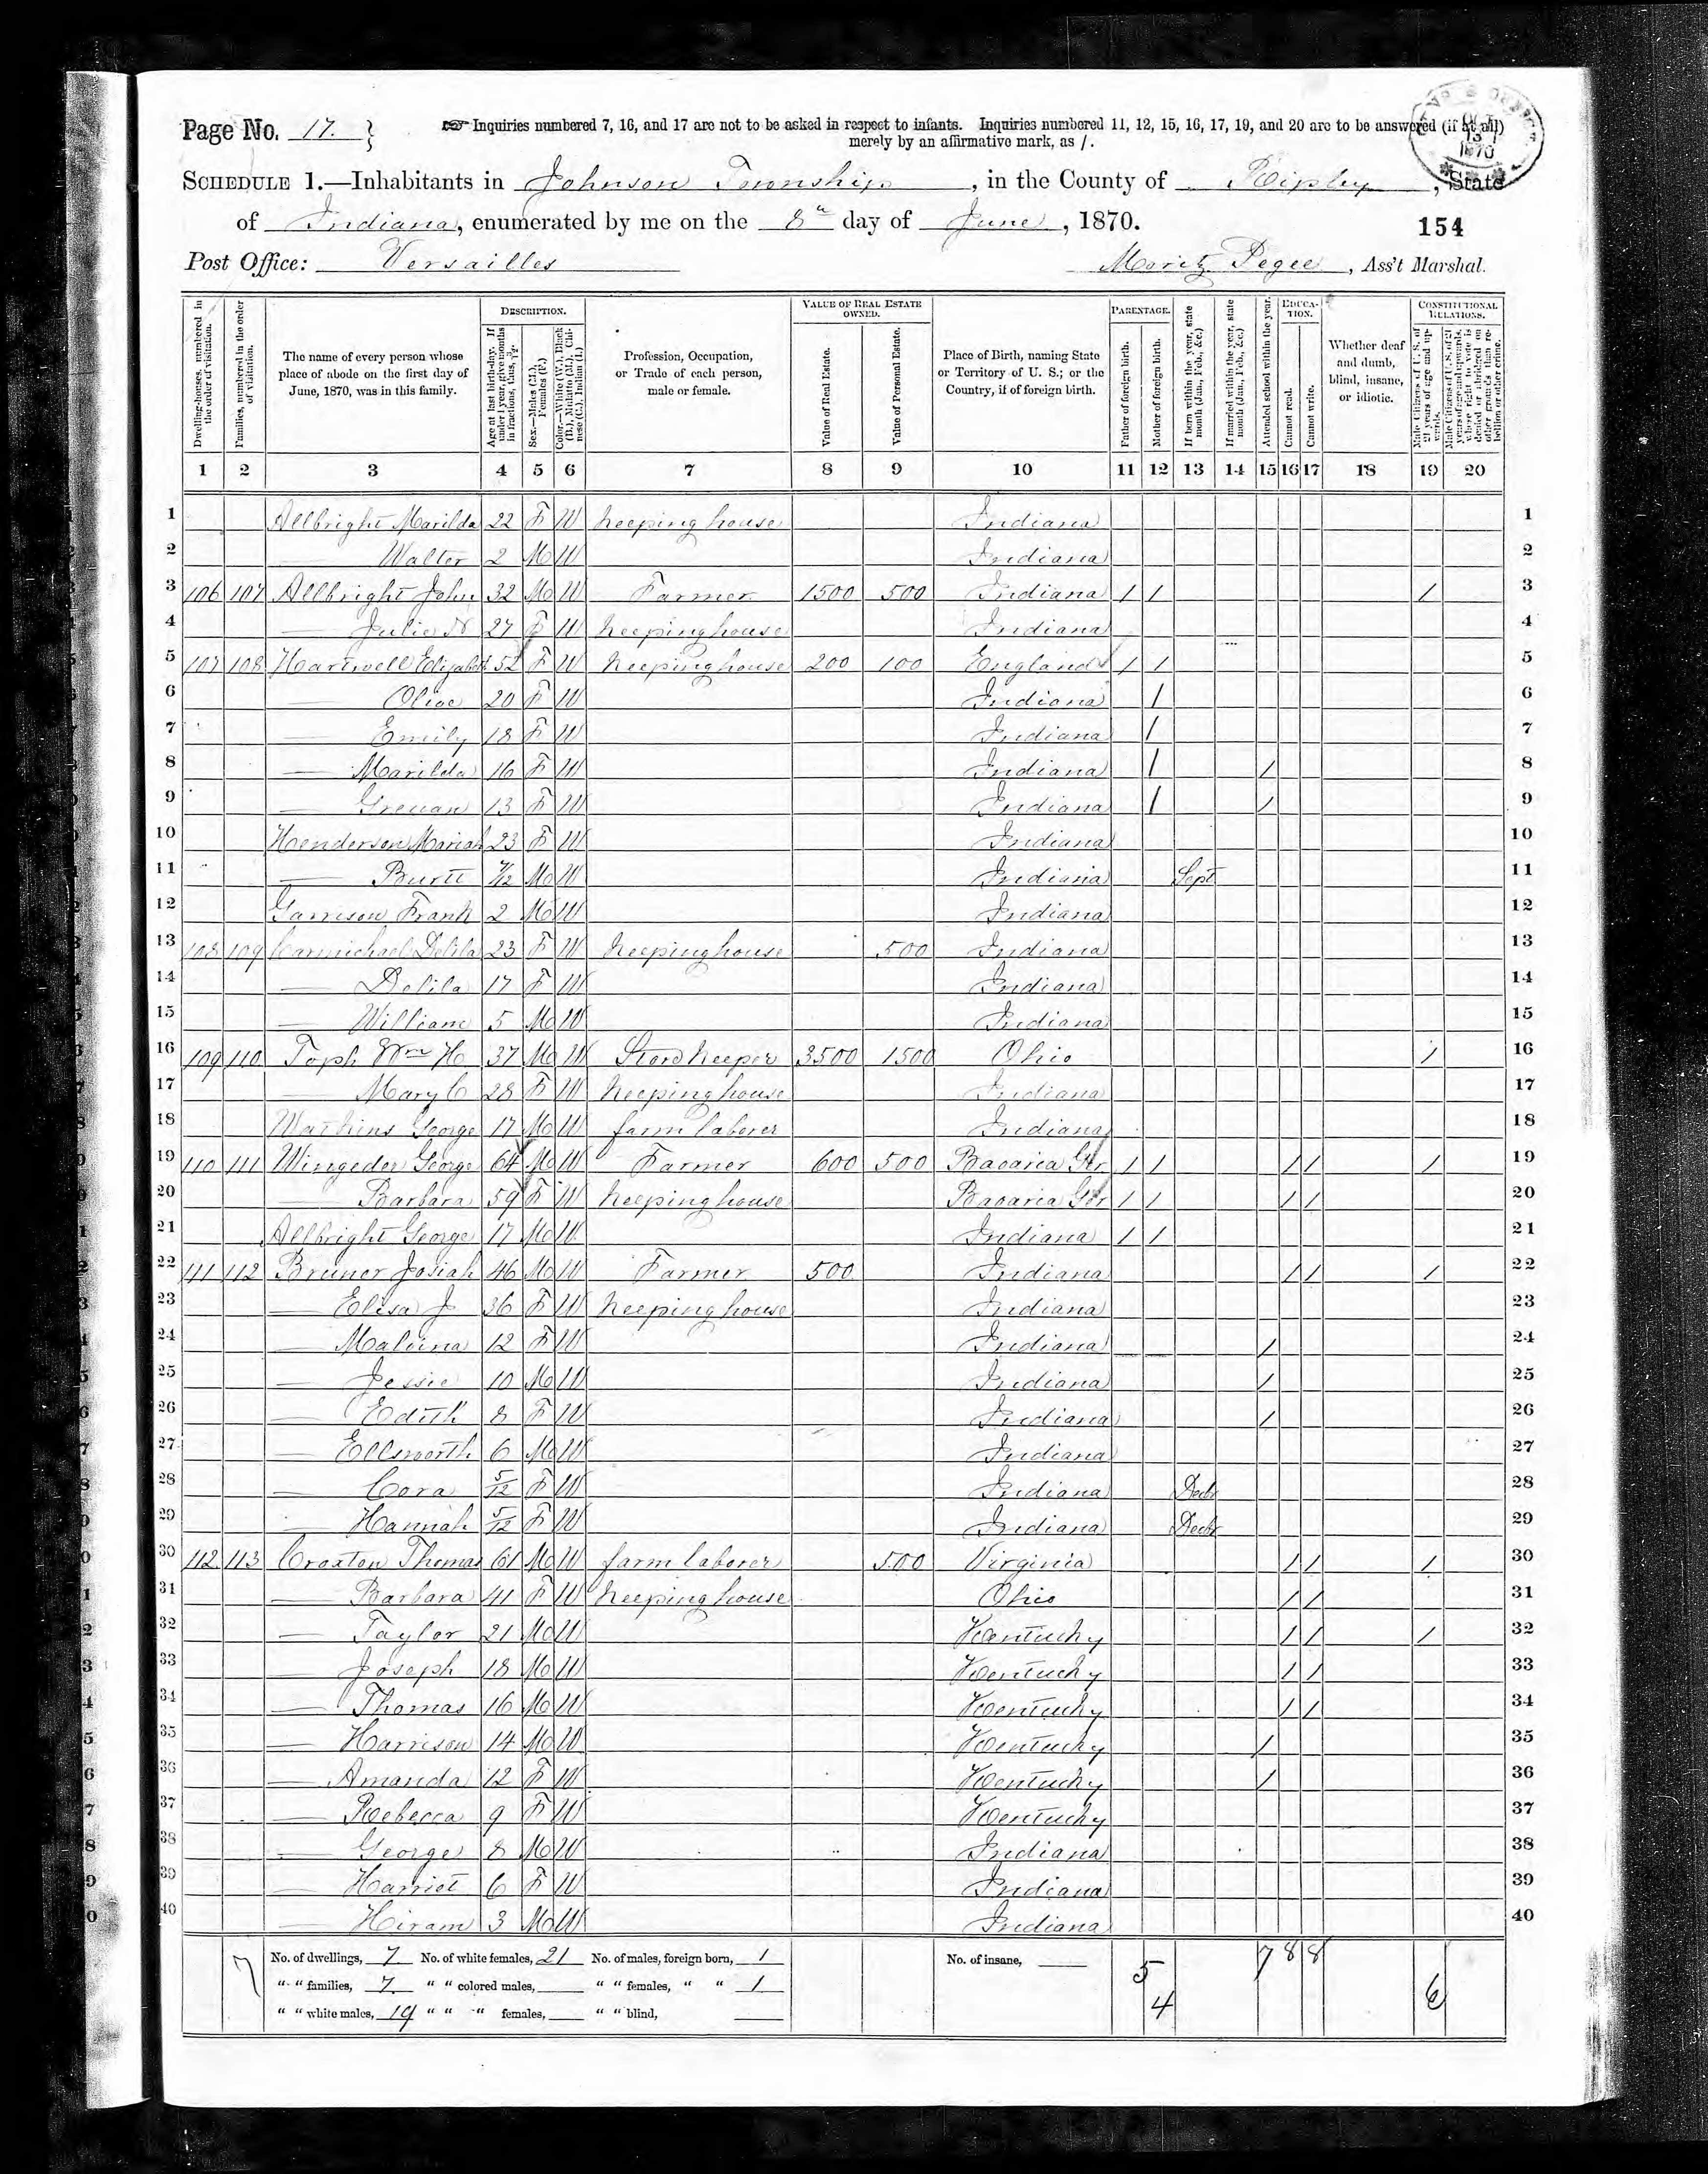 Page No. 17. }
Inquiries numbered 7, 16, and 17 are not to be asked in respect to infants. Inquiries numbered 11, 12, 15, 16, 17, 19, and 20 are to be answered (if at all)
merely by an affirmative mark, as /.
1870
SCHEDULE 1.—Inhabitants in Johnson Township, in the County of Ripley, State
of Indiana, enumerated by me on the 8th day of June, 1870.
154
Post Office: Versailles
Moritz, Ass't Marshal.
Dwelling-houses, numbered in the order of visitation.
Families, numbered in the order of visitation.
The name of every person whose place of abode on the first day of June, 1870, was in this family.
DESCRIPTION.
Age at last birth-day. If under 1 year, give months in fractions, thus, 3/12.
Sex.—Males (M.), Females (F.)
Color.—White (W.), Black (B.), Mulatto (M.), Chinese (C.), Indian (I.)
Profession, Occupation, or Trade of each person, male or female.
VALUE OF REAL ESTATE OWNED.
Value of Real Estate.
Value of Personal Estate.
Place of Birth, naming State or Territory of U. S.; or the Country, if of foreign birth.
PARENTAGE.
Father of foreign birth.
Mother of foreign birth.
If born within the year, state month (Jan., Feb., &c.)
If married within the year, state month (Jan., Feb., &c.)
Attended school within the year.
EDUCATION.
Cannot read.
Cannot write.
Whether deaf and dumb, blind, insane, or idiotic.
CONSTITUTIONAL RELATIONS.
Male Citizens of U. S. of 21 years of age and upwards.
Male Citizens of U. S. of 21 years of age and upwards, whose right to vote is denied or abridged on other grounds than rebellion or other crime.
1 2 3 4 5 6 7 8 9 10 11 12 13 14 15 16 17 18 19 20
1 Allbright Marilda 22 F W Keeping house Indiana 1
2 — Walter 2 M W Indiana 2
3 106 107 Allbright John 32 M W Farmer 1500 500 Indiana / / / 3
4 — Julie 27 F W Keeping house Indiana 4
5 107 108 Hartwell Elizabeth 52 F W Keeping house 200 100 England / / 5
6 — Olive 20 F W Indiana / 6
7 — Emily 18 F W Indiana / 7
8 — Marilda 16 F W Indiana / / 8
9 — 13 F W Indiana / / 9
10 Henderson Mariah 23 F W Indiana 10
11 — Burtt 7/12 M W Indiana Sept 11
12 Garrison Frank 2 M W Indiana 12
13 108 109 Carmichael Delila 23 F W Keeping house 500 Indiana 13
14 — Delila 17 F W Indiana 14
15 — William 5 M W Indiana 15
16 109 110 Toph Wm H 37 M W Store Keeper 3500 1500 Ohio / 16
17 — Mary C 28 F W Keeping house Indiana 17
18 Watkins George 17 M W farm laborer Indiana 18
19 110 111 Wingeder George 64 M W Farmer 600 500 Bavaria Ger / / / / / 19
20 — Barbara 59 F W Keeping house Bavaria Ger / / / / 20
21 Allbright George 17 M W Indiana / / 21
22 111 112 Bruner Josiah 46 M W Farmer 500 Indiana / / / 22
23 — Elisa J 36 F W Keeping house Indiana 23
24 — Malvina 12 F W Indiana / 24
25 — Jessie 10 M W Indiana / 25
26 — Edith 8 F W Indiana / 26
27 — Ellsworth 6 M W Indiana 27
28 — Cora 5/12 F W Indiana Decbr 28
29 — Hannah 5/12 F W Indiana Decbr 29
30 112 113 Croxton Thomas 61 M W farm laborer 500 Virginia / / / 30
31 — Barbara 41 F W Keeping house Ohio / / 31
32 — Taylor 21 M W Kentucky / / / 32
33 — Joseph 18 M W Kentucky / / 33
34 — Thomas 16 M W Kentucky / / 34
35 — Harrison 14 M W Kentucky / 35
36 — Amanda 12 F W Kentucky / 36
37 — Rebecca 9 F W Kentucky 37
38 — George 8 M W Indiana 38
39 — Harriet 6 F W Indiana 39
40 — Hiram 3 M W Indiana 40
7 No. of dwellings, 7 No. of white females, 21 No. of males, foreign born, 1 No. of insane, 5 7 8 8
" " families, 7 " " colored males, " " females, " " 1 6
" " white males, 19 " " " females, " " blind, 4